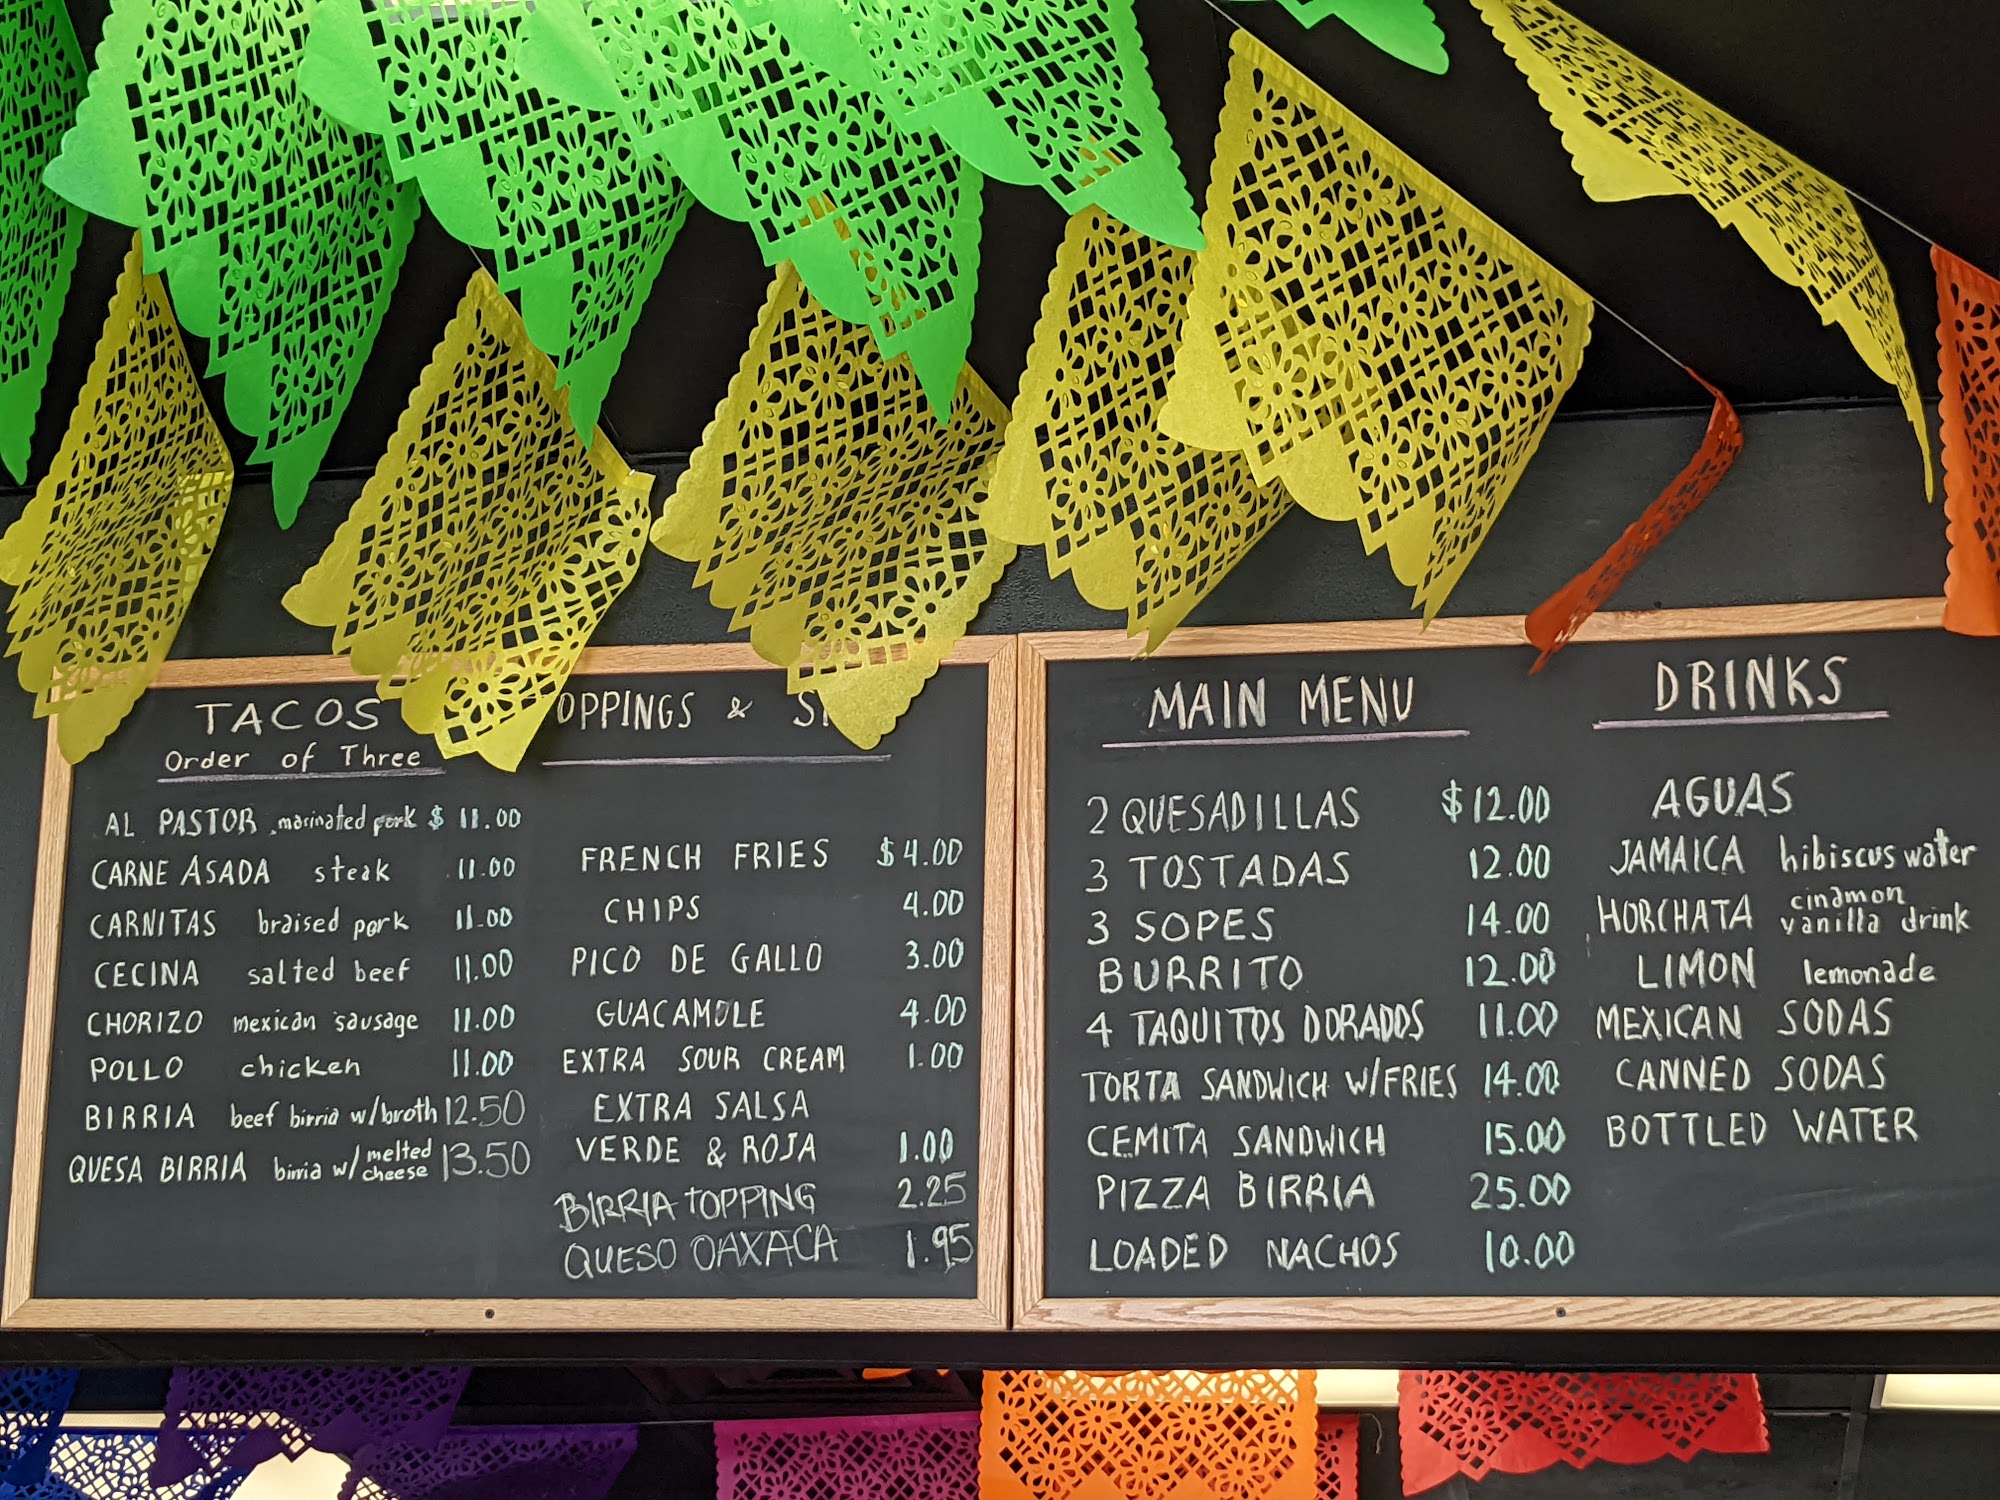 TACOS
Order of Three
AL PASTOR marinated pork $ 11.00
CARNE ASADA steak 11.00
CARNITAS braised pork 11.00
CECINA salted beef 11.00
CHORIZO mexican sausage 11.00
POLLO chicken 11.00
BIRRIA beef birria w/broth 12.50
QUESA BIRRIA birria w/ melted cheese 13.50
OPPINGS &
FRENCH FRIES $4.00
CHIPS 4.00
PICO DE GALLO 3.00
GUACAMOLE 4.00
EXTRA SOUR CREAM 1.00
EXTRA SALSA
VERDE & ROJA 1.00
BIRRIA TOPPING 2.25
QUESO OAXACA 1.95
MAIN MENU
2 QUESADILLAS $12.00
3 TOSTADAS 12.00
3 SOPES 14.00
BURRITO 12.00
4 TAQUITOS DORADOS 11.00
TORTA SANDWICH W/FRIES 14.00
CEMITA SANDWICH 15.00
PIZZA BIRRIA 25.00
LOADED NACHOS 10.00
DRINKS
AGUAS
JAMAICA hibiscus water
HORCHATA cinamon vanilla drink
LIMON lemonade
MEXICAN SODAS
CANNED SODAS
BOTTLED WATER